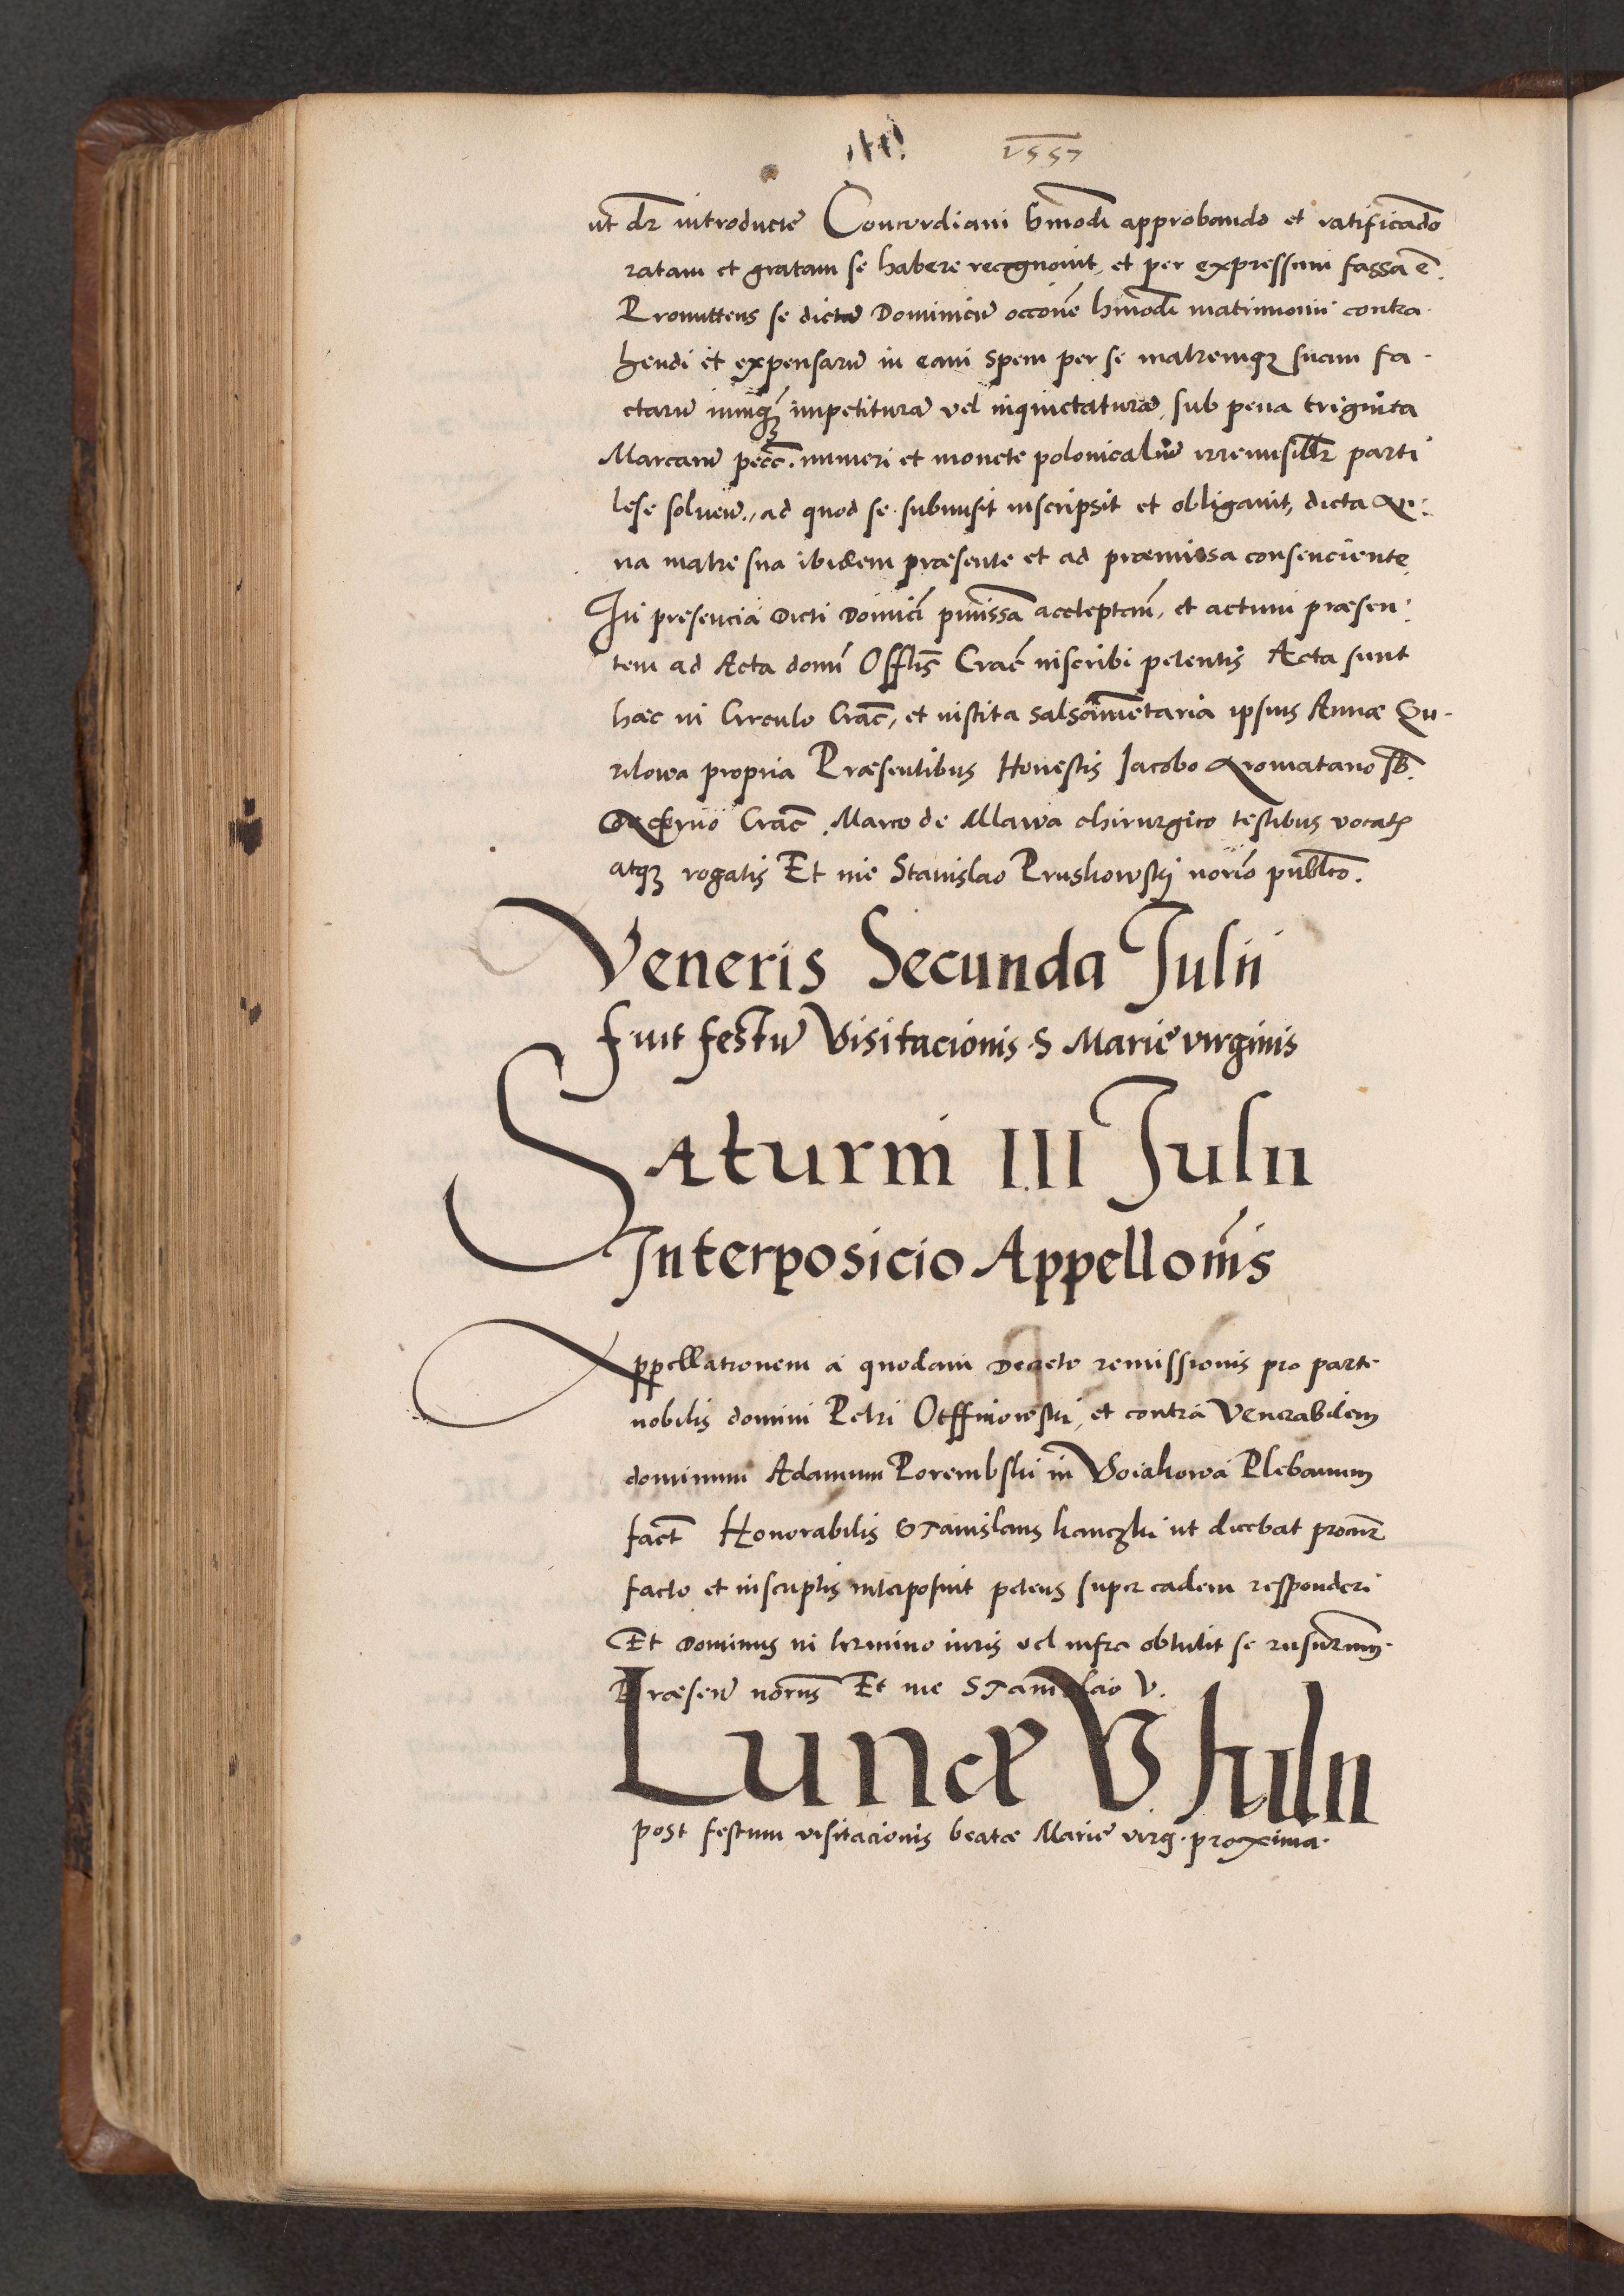 1557
ut dr introducte Concordiam hmodi approbando et ratificado
ratam et gratam se habere recognouit, et per expressum fassa e.
Promittens se dictu Dominicu occone hmodi matrimonii contra-
hendi et expensaru in eam spem per se matremq suam fa-
ctaru nunq impetitura vel inquietatura, sub pena triginta
Marcaru pecc. numeri et monete polonicaliu irremisiblr parti
lese soluen., ad quod se submisit inscripsit et obligauit, dicta An-
na matre sua ibidem præsente et ad præmissa consenciente
In presencia Dicti Dominici pmissa acceptan, et actum præsen-
tem ad Acta domi Offlis Crac inscribi petentis Acta sunt
hæc in Circulo Crac, et instita salsamentaria ipsius Annæ Qu-
rilowa propria Præsentibus Honestis Jacobo Aromatario
Crac, Marco de Mlawa chirurgico testibus vocatis
atq rogatis Et me Stanislao Pruskowskij norio publco.
Veneris Secunda Julii
Fuit festu Visitacionis S Marie virginis
Saturni III Julii
Interposicio Appellonis
Appellationem a quodam Decreto remissionis pro parte
nobilis domini Petri Otffinowski, et contra Venerabilem
dominum Adamum Porembski in Woiakowa Plebanum
fact Honorabilis Stanislaus ut dicebat procur
facto et inscriptis interposuit petens super eadem responderi
Et Dominus in termino iuris vel infra obtulit se rnsurum.
Præsen norus Et me Stanislao V.
Lunæ V Julii
post festum visitacionis beatæ Marie virg. proxima.